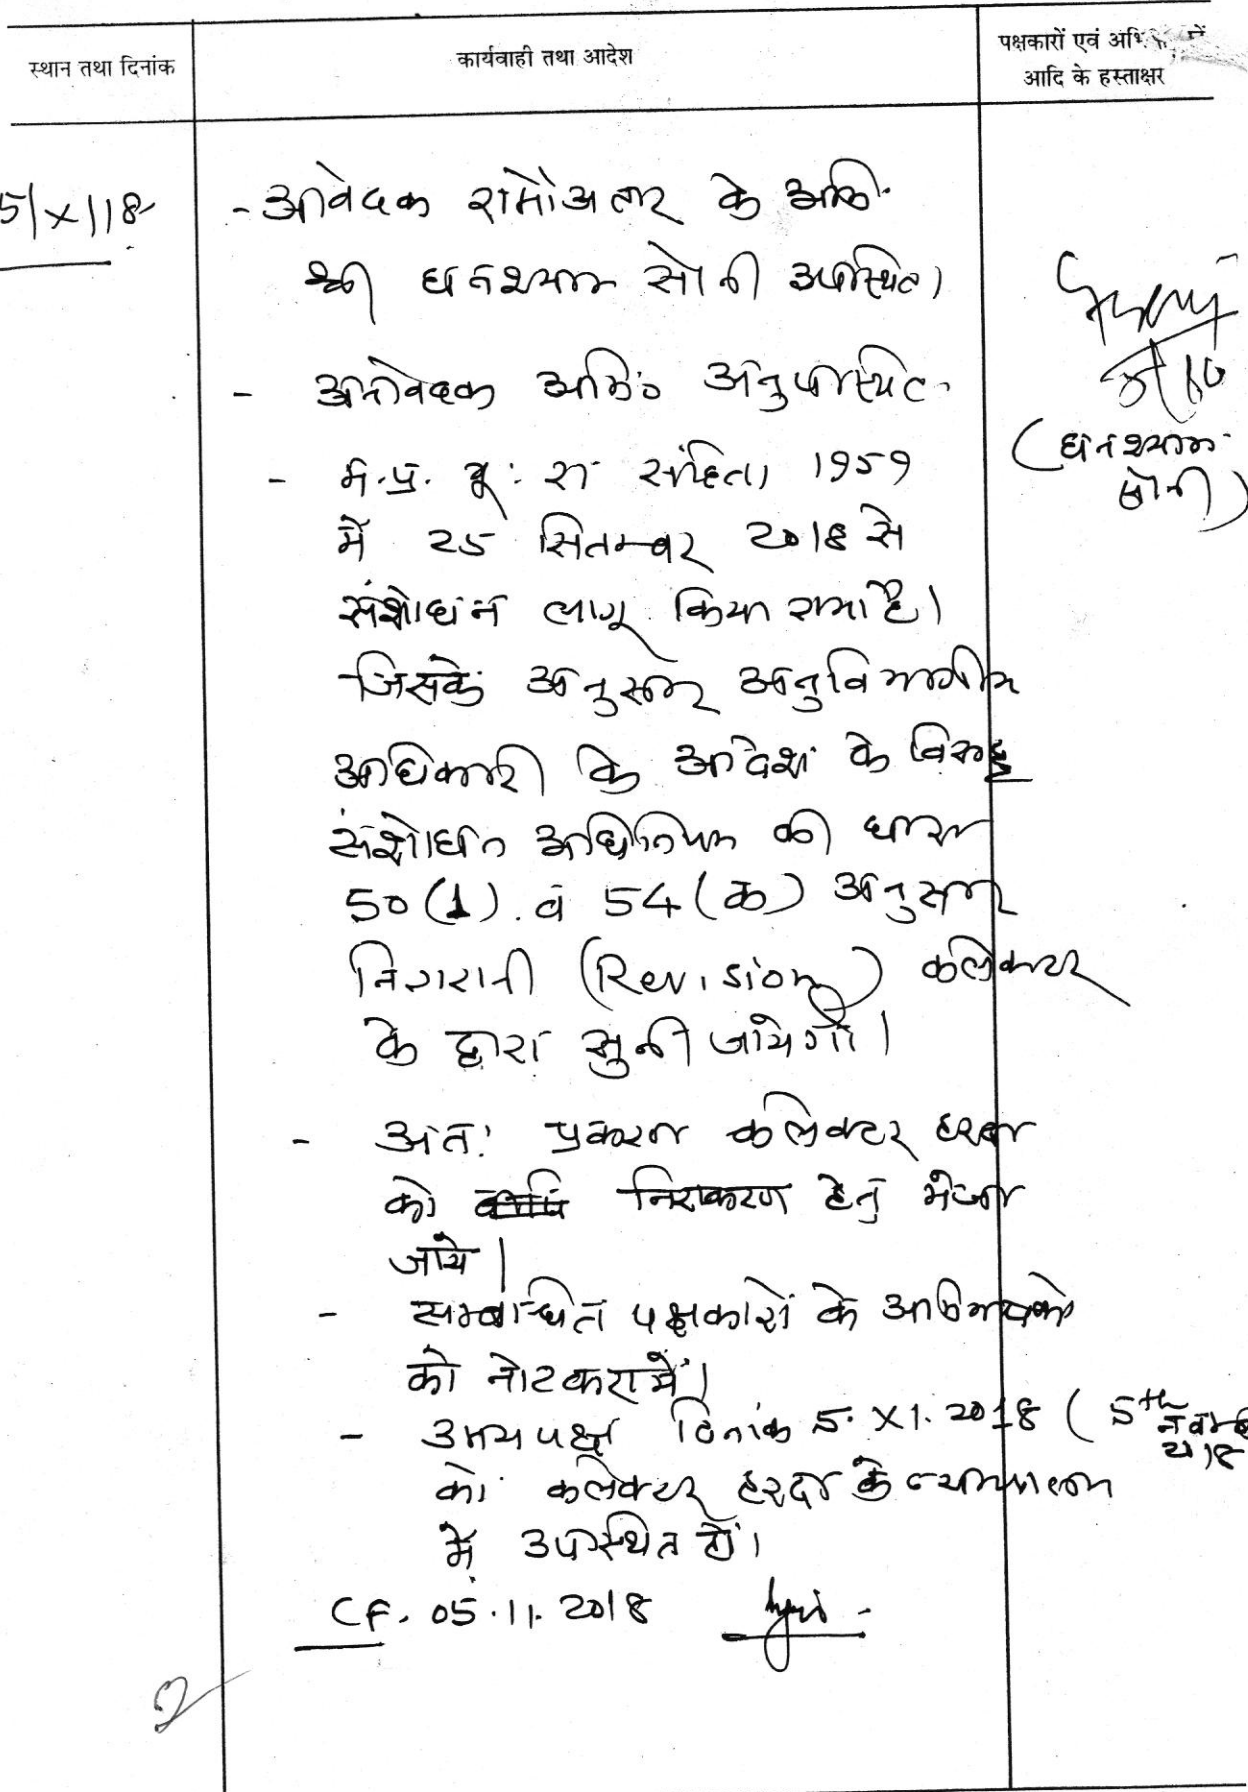 स्थान तथा दिनांक
कार्यवाही तथा आदेश
पक्षकारों एवं
आदि के हस्ताक्षर
5/X/18
- आवेदक रामौअतार के अभि.
श्री घनश्याम सोनी उपस्थित।
- अनावेदक अभि० अनुपस्थित.
- म.प्र. भू. रा संहिता 1959
में 25 सितम्बर 2018 से
संशोधन लागू किया गया है।
जिसके अनुसार अनुविभागीय
अधिकारी के आदेश के विरूद्ध
संशोधित अधिनियम की धारा
50 (1). व 54 (क) अनुसार
निगरानी (Revision) कलेक्टर
के द्वारा सुनी जायेगी।
- अतः प्रकरण कलेक्टर हरदा
को निराकरण हेतु भेजा
जाये।
- सम्बन्धित पक्षकारों के अभिभाषको
को नोट करायें।
- उभयपक्ष दिनांक 5. XI. 2018 ( 5th नवम्बर
2018
को कलेक्टर हरदा के न्यायालय
में उपस्थित हों।
CF. 05.11.2018
(घनश्याम
सोनी)
2